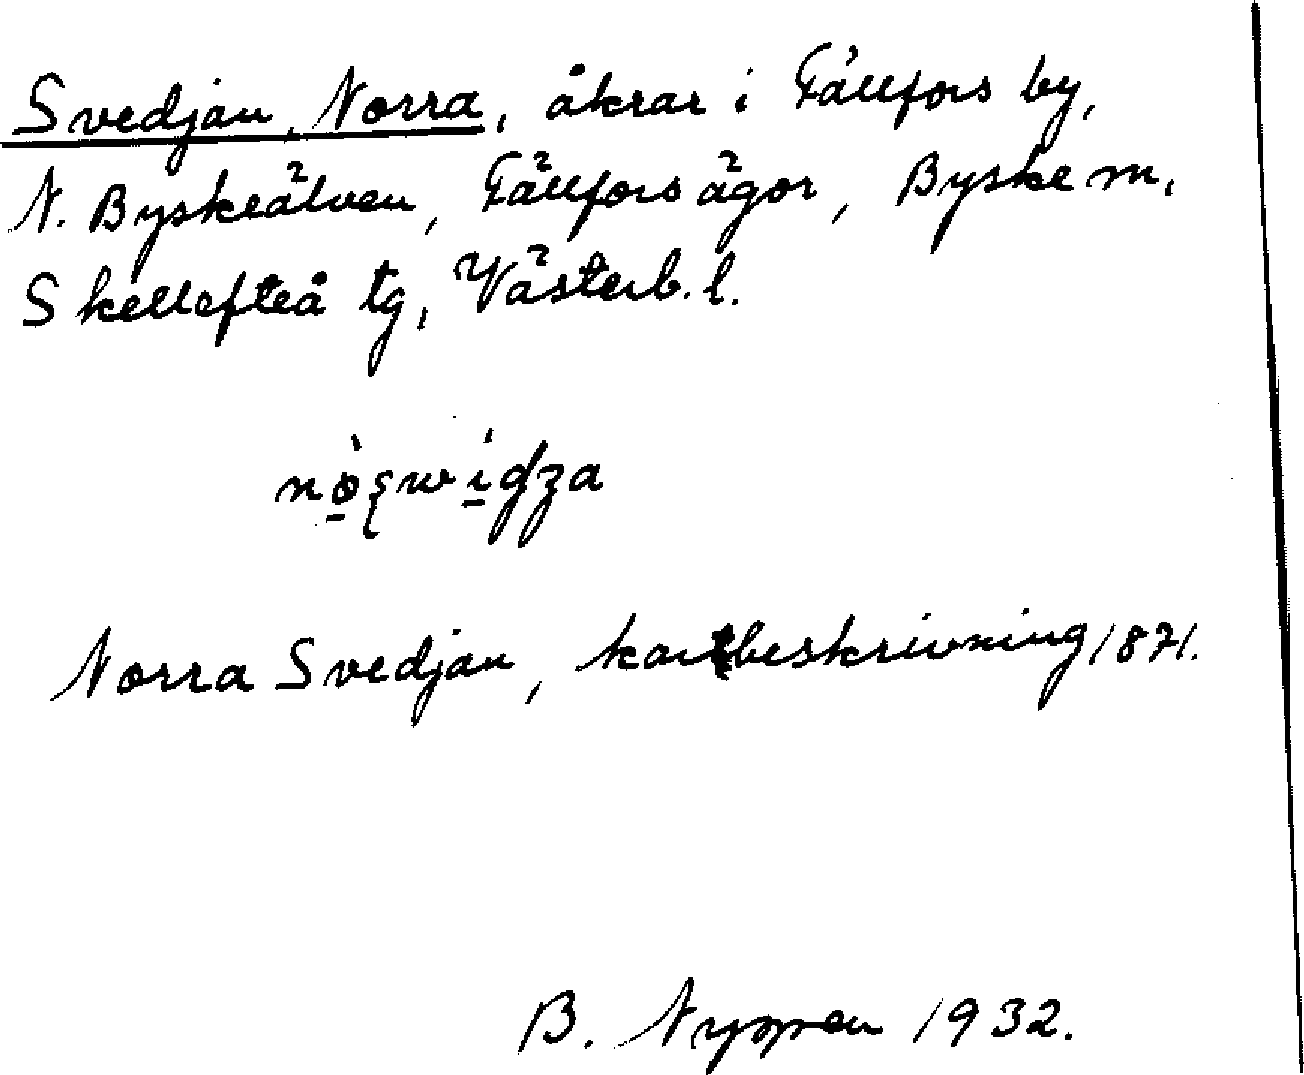 Svedjan, Norra, åkrar i Fällfors by,
N. Byskeälven, Fällfors ägor, Byske m,
Skellefteå tg, Västerb. l.
Norra Svedjan, kartbeskrivning 1871.
B. Nyman 1932.